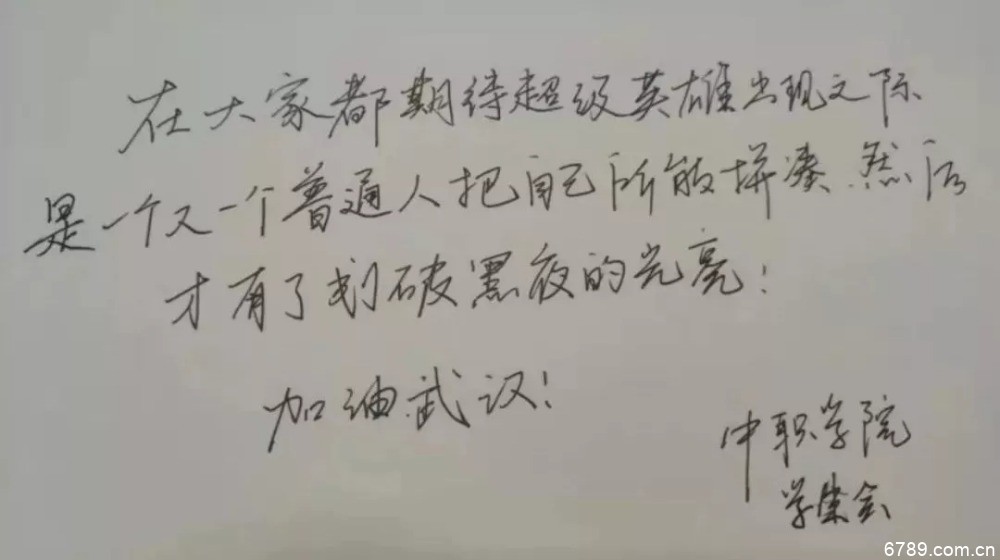 在大家都期待超级英雄出现之际
是一个又一个普通人把自己所能拼凑.然后
才有了划破黑夜的光亮！
加油武汉！
中职学院
学生会
6789.com.cn